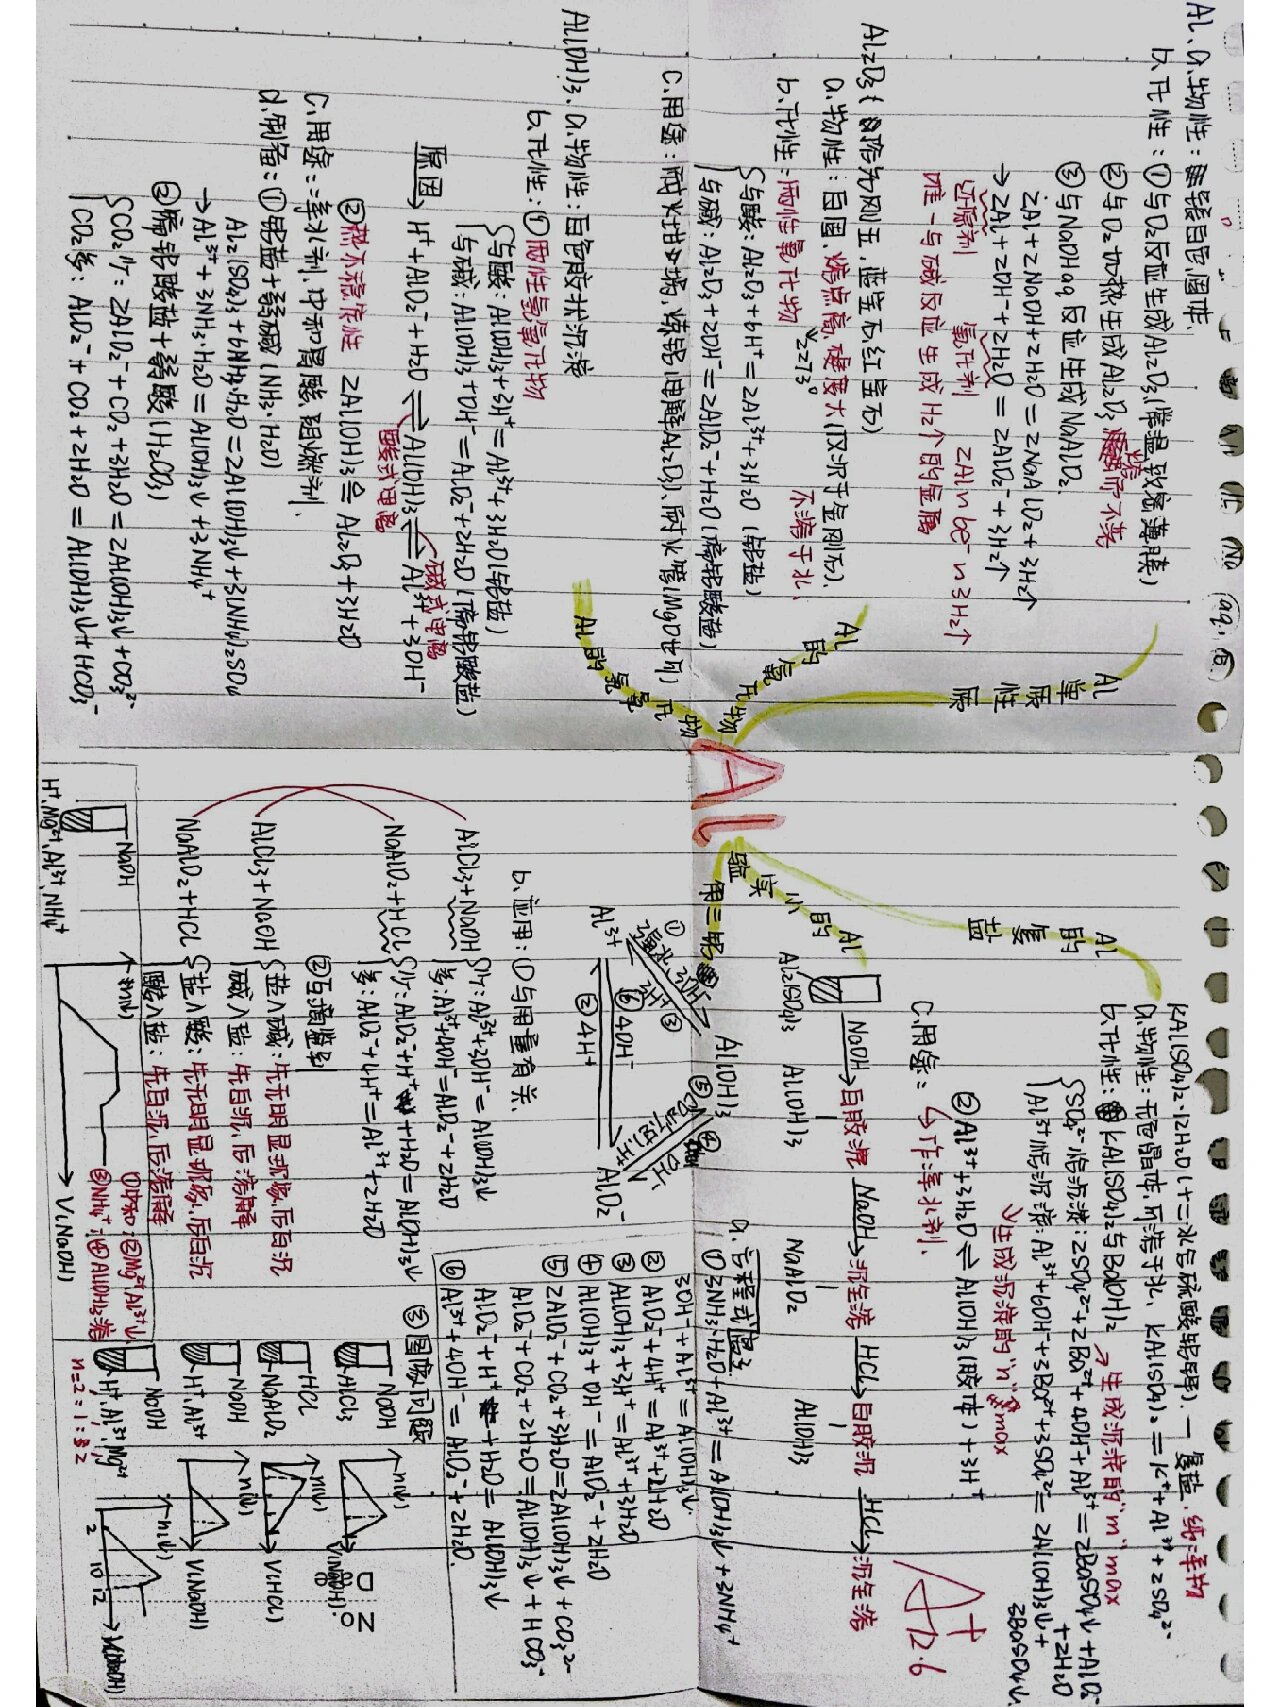 Al、a.物性:银白色固体.
b.化性:①与O₂反应生成Al₂O₃(常温 致密薄膜)
②与O₂加热生成Al₂O₃,熔而不落
③与NaOH aq反应生成NaAlO₂.
2Al+2NaOH+2H₂O=2NaAlO₂+3H₂↑
→2Al+2OH⁻+2H₂O=2AlO₂⁻+3H₂↑
还原剂 氧化剂 2Al~6e⁻~3H₂↑
唯一与碱反应生成H₂↑的金属
Al₂O₃
a.物性:白固、熔点高,硬度大(仅次于金刚石).
不溶于水.
b.化性:两性氧化物
与酸:Al₂O₃+6H⁺=2Al³⁺+3H₂O(铝盐)
与碱:Al₂O₃+2OH⁻=2AlO₂⁻+H₂O(偏铝酸盐)
C.用途:耐火坩埚、炼铝(电解Al₂O₃)、耐火管(MgO也可)
Al(OH)₃.a.物性:白色胶状沉淀
b.化性:①两性氢氧化物
与酸:Al(OH)₃+3H⁺=Al³⁺+3H₂O(铝盐)
与碱:Al(OH)₃+OH⁻=AlO₂⁻+2H₂O(偏铝酸盐)
原因→H⁺+AlO₂⁻+H₂O⇌Al(OH)₃⇌Al³⁺+3OH⁻
酸式电离 碱式电离
②热不稳定性 2Al(OH)₃≙Al₂O₃+3H₂O
C.用途:净水剂,中和胃酸、阻燃剂.
d.制备:①铝盐+弱碱(NH₃·H₂O)
Al₂(SO₄)₃+6NH₃·H₂O=2Al(OH)₃↓+3(NH₄)₂SO₄
→Al³⁺+3NH₃·H₂O=Al(OH)₃↓+3NH₄⁺
②偏铝酸盐+弱酸(H₂CO₃)
CO₂少:2AlO₂⁻+CO₂+3H₂O=2Al(OH)₃↓+CO₃²⁻
CO₂多:AlO₂⁻+CO₂+2H₂O=Al(OH)₃↓+HCO₃⁻
Al单质性质
Al的氧化物
Al的氢氧化物
AL
Al的复盐
Al的小实验
KAl(SO₄)₂·12H₂O(十二水合硫酸铝钾).—复盐.纯净物
a.物性:无色晶体,可溶于水,KAl(SO₄)₂=K⁺+Al³⁺+2SO₄²⁻
b.化性:①KAl(SO₄)₂与Ba(OH)₂
生成沉淀的"m"max
SO₄²⁻完沉淀:2SO₄²⁻+2Ba²⁺+4OH⁻+Al³⁺=2BaSO₄↓+AlO₂⁻+2H₂O
Al³⁺完沉淀:2Al³⁺+6OH⁻+3Ba²⁺+3SO₄²⁻=2Al(OH)₃↓+3BaSO₄↓
生成沉淀的"n"max
②Al³⁺+3H₂O⇌Al(OH)₃(胶体)+3H⁺
C.用途:作净水剂.
A⁺ 12.6
NaOH→白胶沉 NaOH→沉淀溶 HCl→白胶沉 HCl→沉淀溶
Al₂(SO₄)₃ Al(OH)₃ NaAlO₂ Al(OH)₃
Al(OH)₃
Al³⁺ AlO₂⁻
⑥4OH⁻
②4H⁺
a.方程式
①3NH₃·H₂O+Al³⁺=Al(OH)₃↓+3NH₄⁺
3OH⁻+Al³⁺=Al(OH)₃↓
②AlO₂⁻+4H⁺=Al³⁺+2H₂O
③Al(OH)₃+3H⁺=Al³⁺+3H₂O
④Al(OH)₃+OH⁻=AlO₂⁻+2H₂O
⑤2AlO₂⁻+CO₂+3H₂O=2Al(OH)₃↓+CO₃²⁻
AlO₂⁻+CO₂+2H₂O=Al(OH)₃↓+HCO₃⁻
AlO₂⁻+H⁺+H₂O=Al(OH)₃↓
⑥Al³⁺+4OH⁻=AlO₂⁻+2H₂O
b.应用:①与用量有关.
AlCl₃+NaOH 少:Al³⁺+3OH⁻=Al(OH)₃↓
多:Al³⁺+4OH⁻=AlO₂⁻+2H₂O
NaAlO₂+HCl 少:AlO₂⁻+H⁺+H₂O=Al(OH)₃↓
多:AlO₂⁻+4H⁺=Al³⁺+2H₂O
②互滴鉴别
AlCl₃+NaOH 盐入碱:先无明显现象,后白沉
碱入盐:先白沉,后溶解
NaAlO₂+HCl 盐入酸:先无明显现象,后白沉
酸入盐:先白沉,后溶解
③图像问题
NaOH AlCl₃ n(↓) V(NaOH)
HCl NaAlO₂ n(↓) V(HCl)
NaOH H⁺,Al³⁺ n(↓) V(NaOH)
NaOH H⁺,Al³⁺,Mg²⁺ n(↓) 2 10 12 V(NaOH)
NaOH
H⁺,Mg²⁺,Al³⁺,NH₄⁺
n(↓) V(NaOH)
②Mg²⁺Al³⁺↓
③NH₄⁺;④Al(OH)₃溶